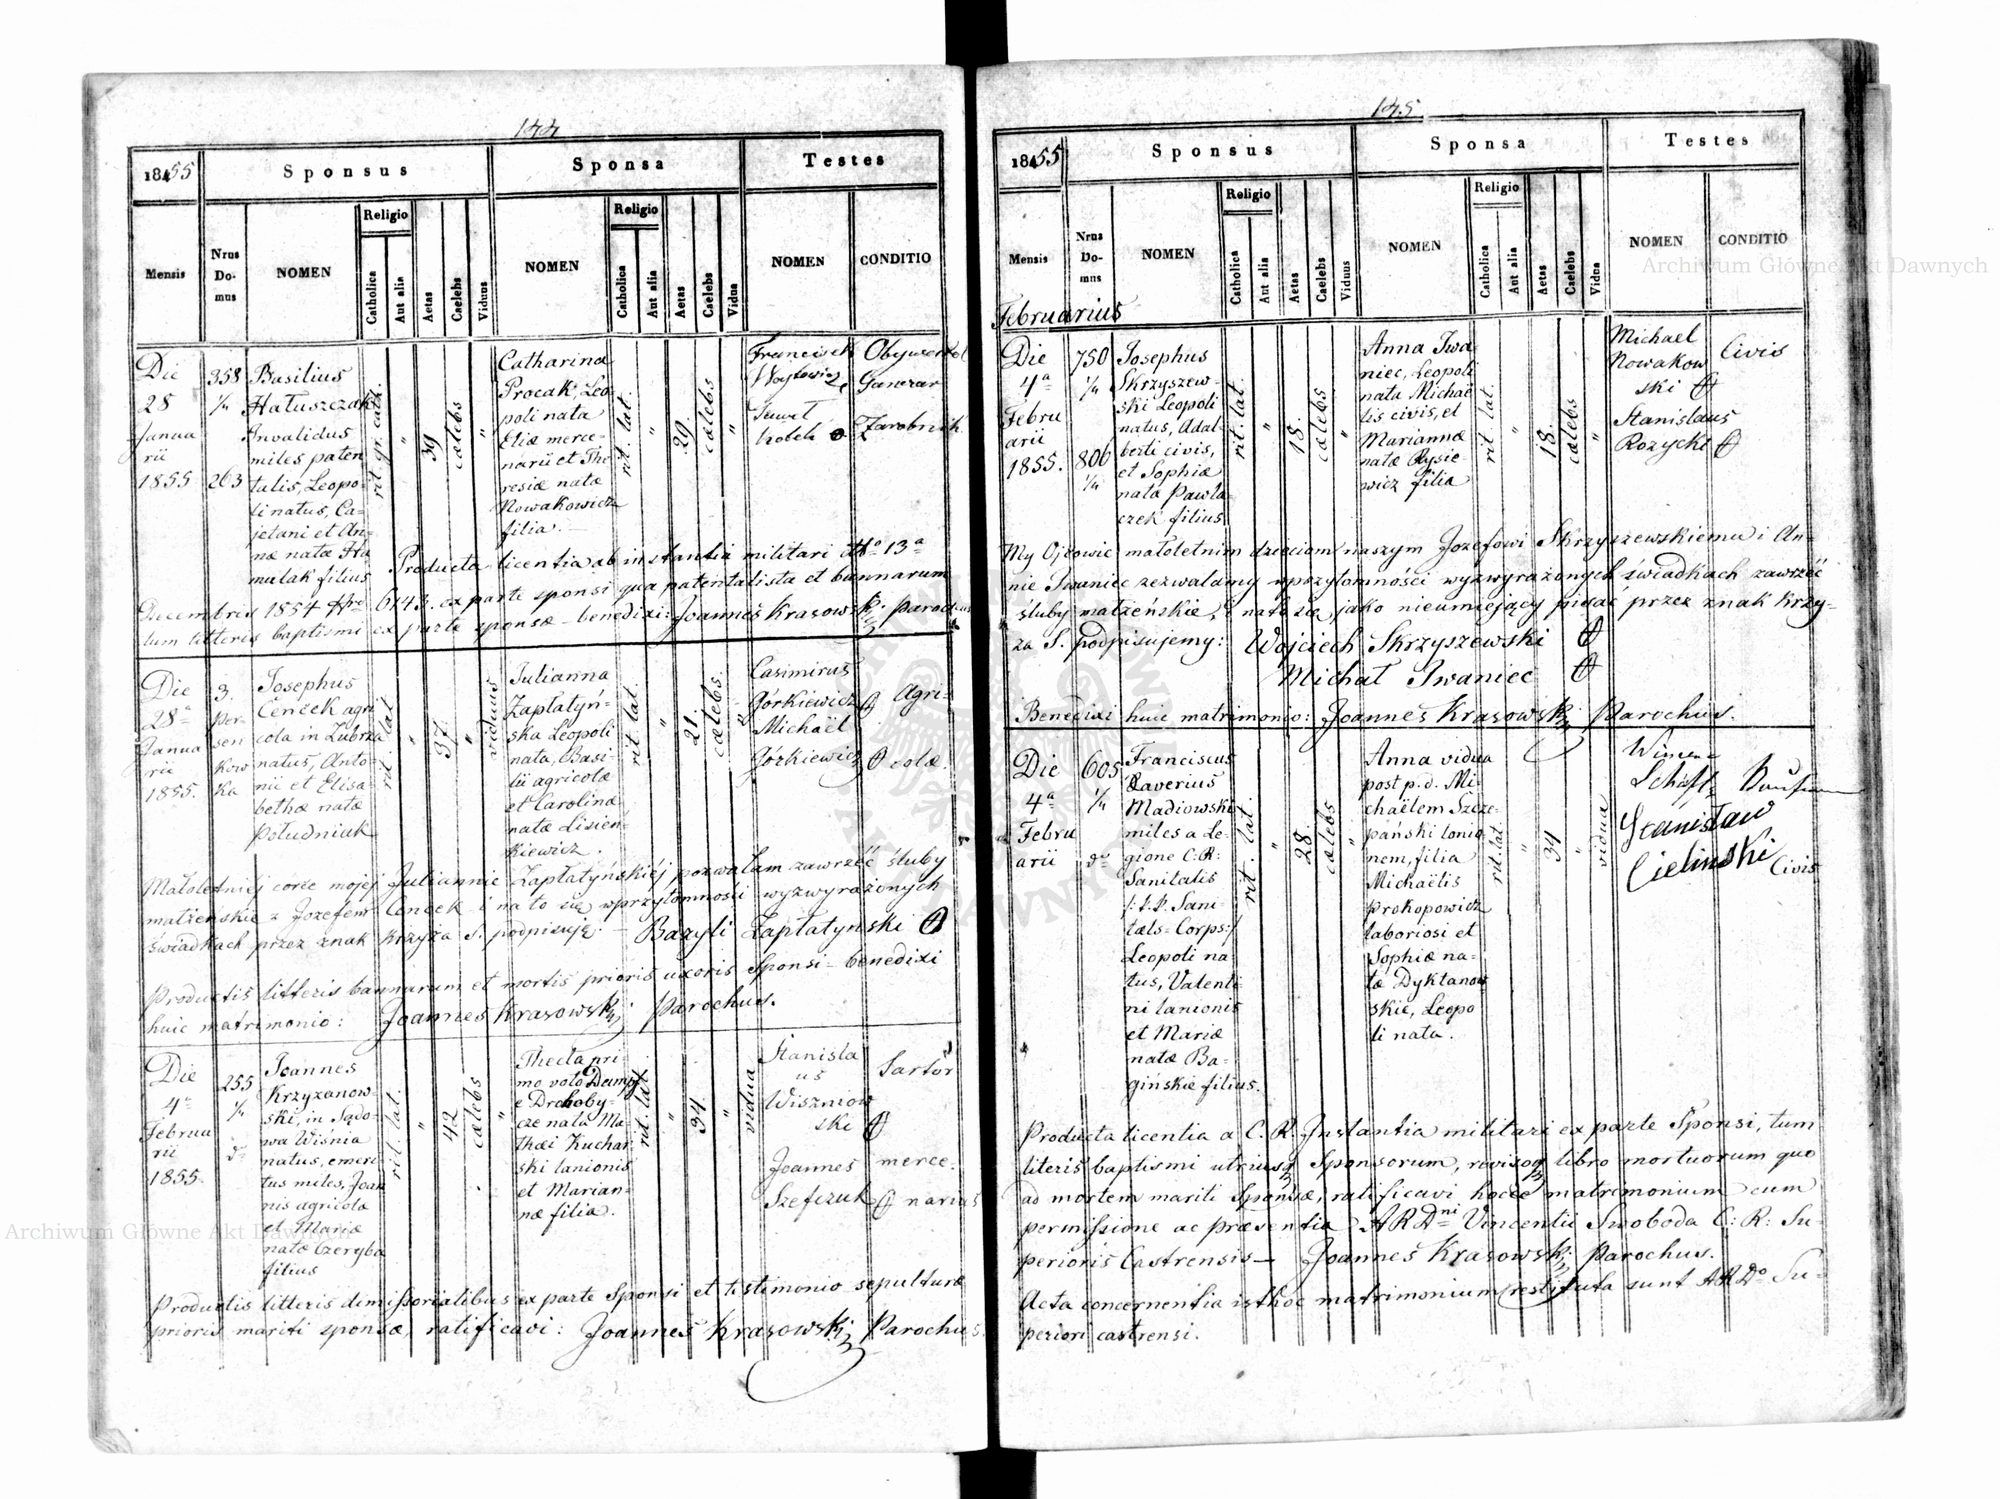 144
1855
Sponsus
Sponsa
Testes
Mensis
Nrus Domus
NOMEN
Religio
Catholica
Aut alia
Aetas
Caelebs
Viduus
NOMEN
Religio
Catholica
Aut alia
Aetas
Caelebs
Vidua
NOMEN
CONDITIO
Die
28
Janua
rii
1855
358
¼
263
Basilius
Hałuszczak
Invalidus
miles paten
talis, Leopo-
li natus, Ca-
jetani et An-
næ natæ Ha
mulak filius
rit. gr. cath.
"
39
cælebs
"
Catharina
Procak, Leo
poli nata
Eliæ merce-
narii et The
resiæ natæ
Nowakowicz
filia.
rit. lat.
"
29.
cælebs
"
Franciszek
Woytowicz
Ganczar
Zarobnik
Producta licentia ab instantia militari ddo 13a
Decembris 1854 Nro 6143. ex parte sponsi qua patentalista et bannorum
tum litteris baptismi ex parte sponsæ – benedixi: Joannes Krasowski parochus
Die
28a
Janua
rii
1855.
3.
per
sen
kow
ka
Josephus
Cencek agri
cola in Zubrza
natus, Anto-
nii et Elisa-
bethæ natæ
Południak
rit. lat.
"
37.
"
viduus
Julianna
Zapłatyń-
ska Leopoli
nata, Basi-
lii agricolæ
et Carolinæ
natæ Lisien-
kiewicz.
rit. lat.
"
21.
cælebs.
"
Casimirus
Górkiewicz
Michaël
Górkiewicz
Agri-
colæ.
Małoletniéj corce mojej Juliannie Zapłatyńskiéj pozwalam zawrzéć śluby
małżenskie z Jozefem Cencek i na to się wprzytomności wyzwyrażonych
świadkach przez znak krzyża S. podpisuję: – Bazyli Zapłatynski
Productis litteris bannorum et mortis prioris uxoris Sponsi – benedixi
huic matrimonio: Joannes Krasowski Parochus.
Die
4a
Februa
rii
1855.
255
¼
do
Joannes
Krzyzanow-
ski, in Sądo-
wa Wisnia
natus, emeri
tus miles, Joan
nis agricolæ
et Mariæ
natæ Czeryba
filius
rit. lat.
"
42
cælebs
"
Thecla pri-
mo voto
e Drohoby-
cze nata Ma-
thæi Kuchar
ski lanionis
et Marian-
næ filia.
rit. lat.
"
34.
"
vidua
Stanisla
us
Wiszniow
ski
Sartor
Joannes
Szefczuk
merce-
narius
Productis litteris dimissorialibus ex parte Sponsi et testimonio sepulturæ
prioris mariti sponsæ, ratificavi: Joannes Krasowski Parochus.
145
1855
Sponsus
Sponsa
Testes
Mensis
Nrus Domus
NOMEN
Religio
Catholica
Aut alia
Aetas
Caelebs
Viduus
NOMEN
Religio
Catholica
Aut alia
Aetas
Caelebs
Vidua
NOMEN
CONDITIO
Februarius
Die
4a
Febru
arii
1855.
750
¼
806
¼
Josephus
Skrzyszew-
ski Leopoli
natus, Adal-
berti civis,
et Sophiæ
natæ Pawla-
czek filius
rit. lat.
"
18.
cælebs
"
Anna Iwa
niec, Leopoli
nata Michaë
lis civis, et
Mariannæ
natæ Rysie-
wicz filia
rit. lat.
"
18.
cælebs
"
Michael
Nowakow
ski
Civis
Stanislaus
Rozycki
My Ojcowie małoletnim dzieciom naszym Jozefowi Skrzyszewskiemu i An-
nie Iwaniec zezwalamy wprzytomności wyzwyrażonych świadkach zawrzéć
śluby małżeńskie, i na to się, jako nieumiejący pisać przez znak krzy-
za S. podpisujemy: Wojciech Skrzyszewski
Michał Iwaniec
Benedixi huic matrimonio: Joannes Krasowski Parochus.
Die
4a
Febru
arii
605
¼
do
Franciscus
Xaverius
Madiowski
miles a Le-
gione C: R:
Sanitatis
Sani-
täts-Corps:/
Leopoli na-
tus, Valenti
ni lanionis
et Mariæ
natæ Ba-
gińskie filius.
rit. lat.
"
28
cælebs
"
Anna vidua
post p. d. Mi-
chaëlem Szcze-
pański lanio-
nem, filia
Michaëlis
Prokopowicz
laboriosi et
Sophiæ na-
tæ Dyktanow
skie, Leopo
li nata.
rit. lat.
"
34
"
vidua
Stanisław
Cielinski
Civis
Producta licentia a C. R. Instantia militari ex parte Sponsi, tum
literis baptismi utriusq Sponsorum, revisoq libro mortuorum quo
ad mortem mariti Sponsæ, ratificavi hocce matrimonium cum
permissione ac præsentia ARDni Vincentii Swoboda C: R: Su-
perioris Castrensis — Joannes Krasowski Parochus.
Acta concernentia isthoc matrimonium restituta sunt ARDo Su-
periori castrensi.
Archiwum Główne Akt Dawnych
Archiwum Główne Akt Dawnych